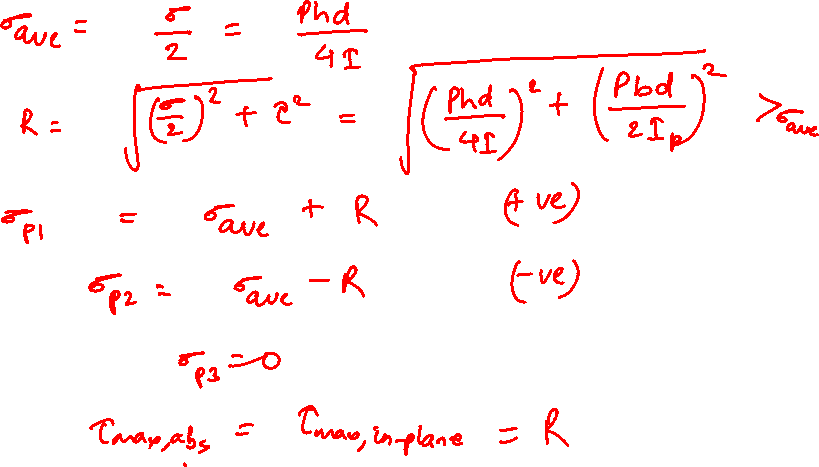 σave = σ/2 = Phd/4I
R = √((σ/2)² + τ²) = √((Phd/4I)² + (Pbd/2Ip)²) > σave
σp1 = σave + R (+ve)
σp2 = σave - R (-ve)
σp3 = 0
τmax,abs = τmax,in-plane = R